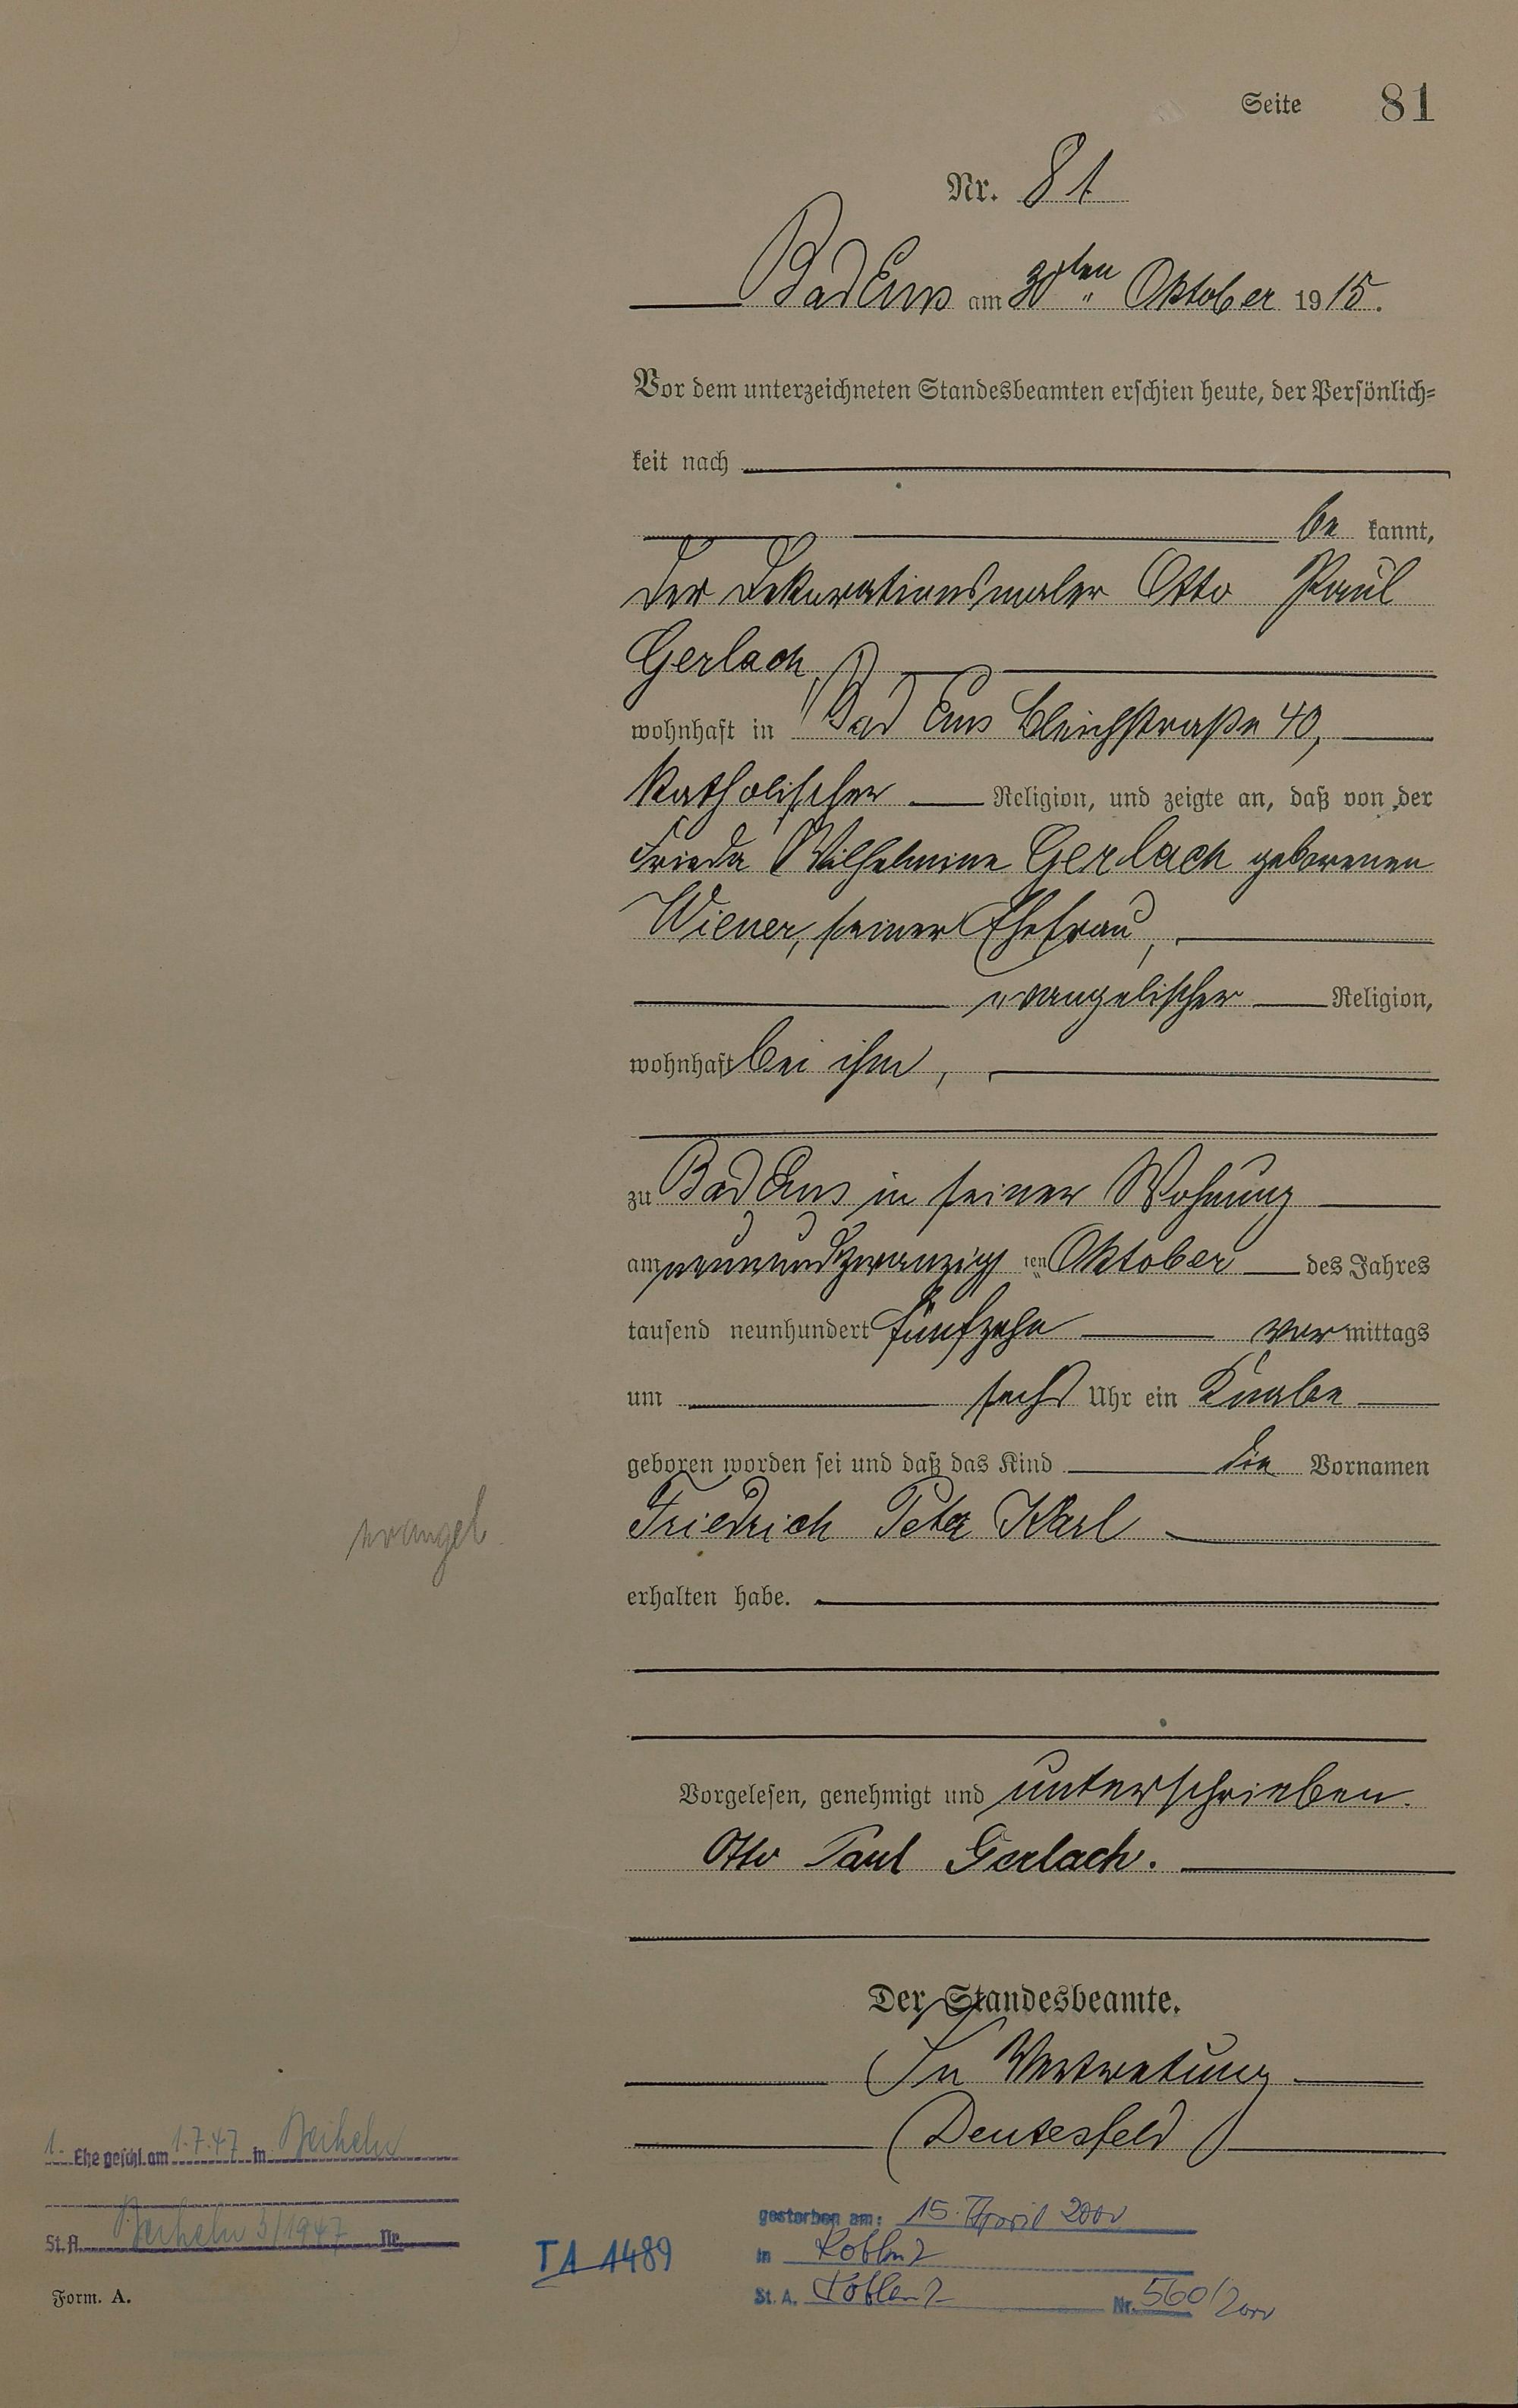 Seite 81
Nr. 81
Bad Ems am 30ten Oktober 1915.
Vor dem unterzeichneten Standesbeamten erschien heute, der Persönlich=
keit nach
be kannt,
der Dekorationsmaler Otto Paul
Gerlach,
wohnhaft in Bad Ems Bleichstraße 40,
katholischer Religion, und zeigte an, daß von der
Frieda Wilhelmine Gerlach geborenen
Wiener, seiner Ehefrau,
evangelischer Religion,
wohnhaft bei ihm,
zu Bad Ems in seiner Wohnung
am neunundzwanzig ten Oktober des Jahres
tausend neunhundert fünfzehn vor mittags
um sechs Uhr ein Knabe
geboren worden sei und daß das Kind die Vornamen
Friedrich Peter Karl
evangel.
erhalten habe.
Vorgelesen, genehmigt und unterschrieben.
Otto Paul Gerlach.
Der Standesbeamte.
In Vertretung
(Deutesfeld)
1. Ehe geschl. am 1.7.47 in
St. A. 3/1947 Nr.
gestorben am: 15. April 2000
in Koblenz
St. A. Koblenz Nr. 560/2000
TA 1489
Form. A.